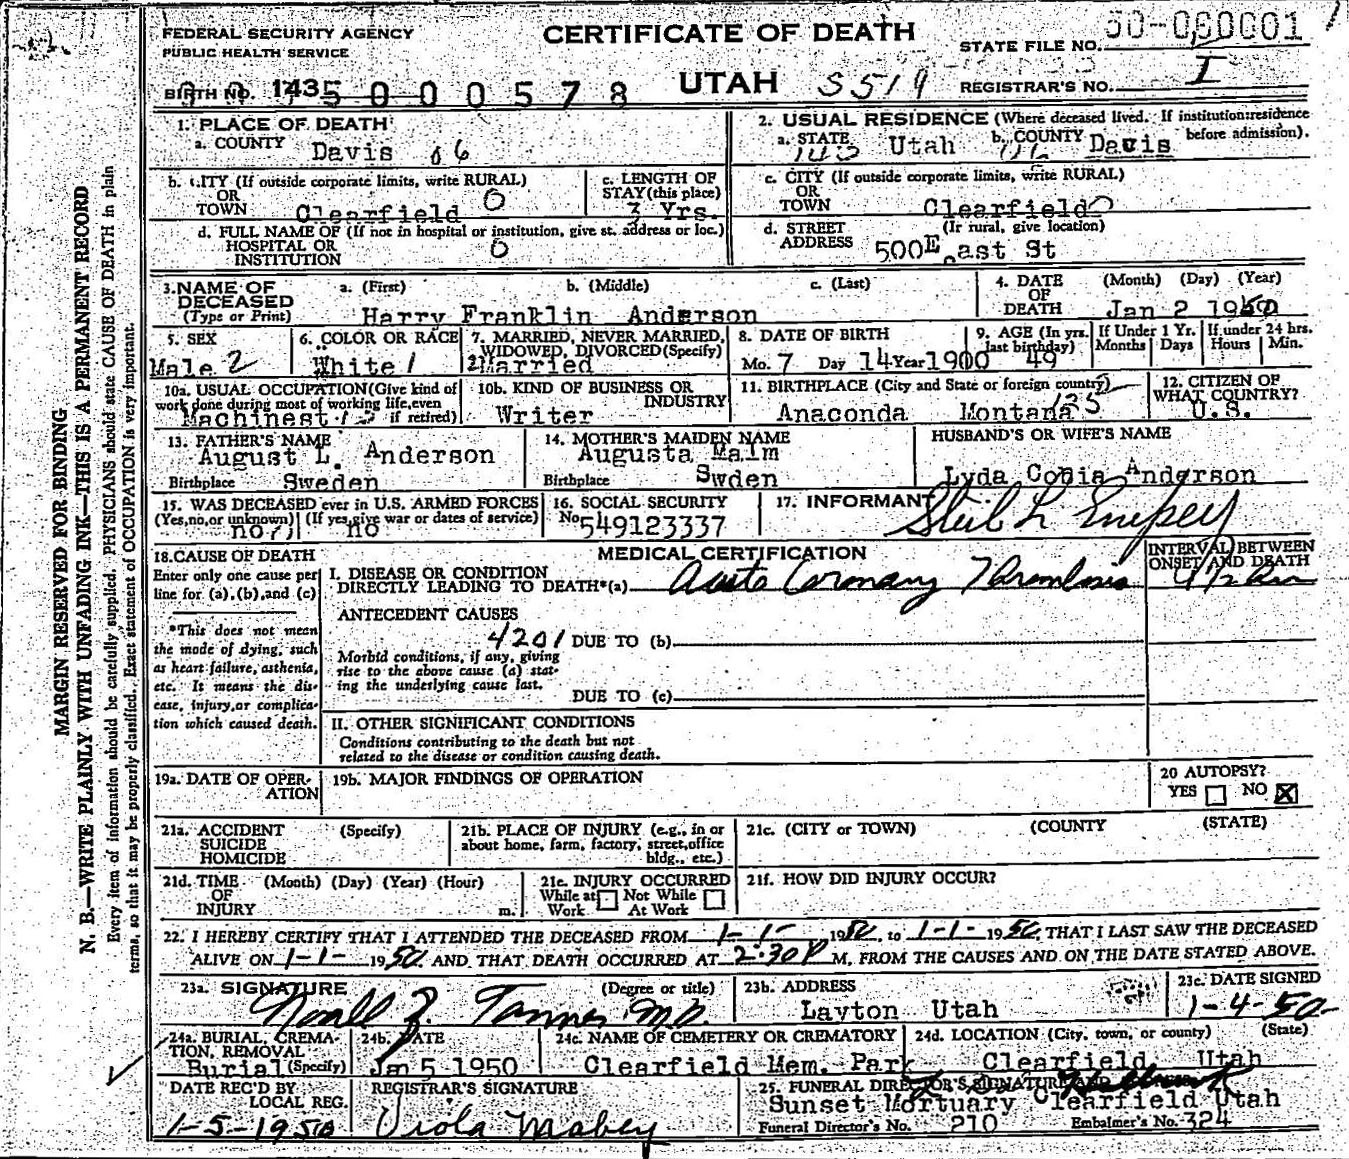 FEDERAL SECURITY AGENCY
PUBLIC HEALTH SERVICE
CERTIFICATE OF DEATH
STATE FILE NO.
BIRTH NO. 1435 0 0 0 5 7 8
UTAH S519
REGISTRAR'S NO. I
1. PLACE OF DEATH
a. COUNTY
Davis 06
2. USUAL RESIDENCE (Where deceased lived. If institution: residence before admission).
a. STATE Utah b. COUNTY Davis
b. CITY (If outside corporate limits, write RURAL)
OR
TOWN Clearfield 0
c. LENGTH OF
STAY (this place)
3 Yrs.
c. CITY (If outside corporate limits, write RURAL)
OR
TOWN Clearfield 0
d. FULL NAME OF (If not in hospital or institution, give st. address or loc.)
HOSPITAL OR
INSTITUTION 0
d. STREET (If rural, give location)
ADDRESS 500 East St
3. NAME OF
DECEASED
(Type or Print)
a. (First) b. (Middle) c. (Last)
Harry Franklin Anderson
4. DATE
OF
DEATH
(Month) (Day) (Year)
Jan 2 1950
5. SEX
Male 2
6. COLOR OR RACE
White 1
7. MARRIED, NEVER MARRIED,
WIDOWED, DIVORCED (Specify)
2 Married
8. DATE OF BIRTH
Mo. 7 Day 14 Year 1900
9. AGE (In yrs.
last birthday)
49
If Under 1 Yr.
Months Days
If under 24 hrs.
Hours Min.
10a. USUAL OCCUPATION (Give kind of
work done during most of working life, even
if retired)
Machinest
10b. KIND OF BUSINESS OR
INDUSTRY
Writer
11. BIRTHPLACE (City and State or foreign country)
Anaconda Montana 125
12. CITIZEN OF
WHAT COUNTRY?
U.S.
13. FATHER'S NAME
August L. Anderson
Birthplace Sweden
14. MOTHER'S MAIDEN NAME
Augusta Malm
Birthplace Swden
HUSBAND'S OR WIFE'S NAME
Lyda Anderson
15. WAS DECEASED ever in U.S. ARMED FORCES
(Yes, no, or unknown) (If yes, give war or dates of service)
no no
16. SOCIAL SECURITY
No 549123337
17. INFORMANT
18. CAUSE OF DEATH
Enter only one cause per
line for (a), (b), and (c)
*This does not mean
the mode of dying, such
as heart failure, asthenia,
etc. It means the dis-
ease, injury, or complica-
tion which caused death.
MEDICAL CERTIFICATION
INTERVAL BETWEEN
ONSET AND DEATH
I. DISEASE OR CONDITION
DIRECTLY LEADING TO DEATH*(a) Acute Coronary Thrombosis
ANTECEDENT CAUSES
4201 DUE TO (b)
Morbid conditions, if any, giving
rise to the above cause (a) stat-
ing the underlying cause last.
DUE TO (c)
II. OTHER SIGNIFICANT CONDITIONS
Conditions contributing to the death but not
related to the disease or condition causing death.
19a. DATE OF OPER-
ATION
19b. MAJOR FINDINGS OF OPERATION
20 AUTOPSY?
YES NO X
21a. ACCIDENT (Specify)
SUICIDE
HOMICIDE
21b. PLACE OF INJURY (e.g., in or
about home, farm, factory, street, office
bldg., etc.)
21c. (CITY or TOWN) (COUNTY (STATE)
21d. TIME (Month) (Day) (Year) (Hour)
OF
INJURY m.
21e. INJURY OCCURRED
While at Not While
Work At Work
21f. HOW DID INJURY OCCUR?
22. I HEREBY CERTIFY THAT I ATTENDED THE DECEASED FROM 1-1- 1950, to 1-1- 1950, THAT I LAST SAW THE DECEASED
ALIVE ON 1-1- 1950, AND THAT DEATH OCCURRED AT 2:30 P M, FROM THE CAUSES AND ON THE DATE STATED ABOVE.
23a. SIGNATURE (Degree or title)
Tanner M.D.
23b. ADDRESS
Layton Utah
23c. DATE SIGNED
1-4-50
24a. BURIAL, CREMA-
TION, REMOVAL
Burial (Specify)
24b. DATE
Jan 5 1950
24c. NAME OF CEMETERY OR CREMATORY
Clearfield Mem. Park
24d. LOCATION (City, town, or county) (State)
Clearfield, Utah
DATE REC'D BY
LOCAL REG.
1-5-1950
REGISTRAR'S SIGNATURE
Viola Mabey
25. FUNERAL DIRECTOR'S SIGNATURE
Sunset Mortuary Clearfield Utah
Funeral Director's No. 210 Embalmer's No. 324
MARGIN RESERVED FOR BINDING
N. B.—WRITE PLAINLY WITH UNFADING INK—THIS IS A PERMANENT RECORD
Every item of information should be carefully supplied. PHYSICIANS should state CAUSE OF DEATH in plain
terms, so that it may be properly classified. Exact statement of OCCUPATION is very important.